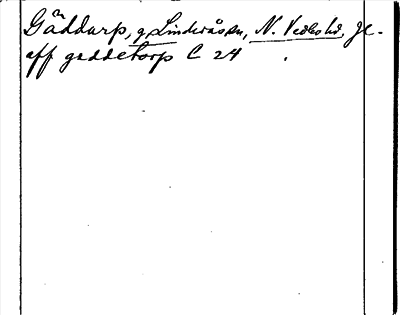 Gäddarp, g. Linderåsen, N. Vedbo hd, Jc.
aff gaddetorp C 24